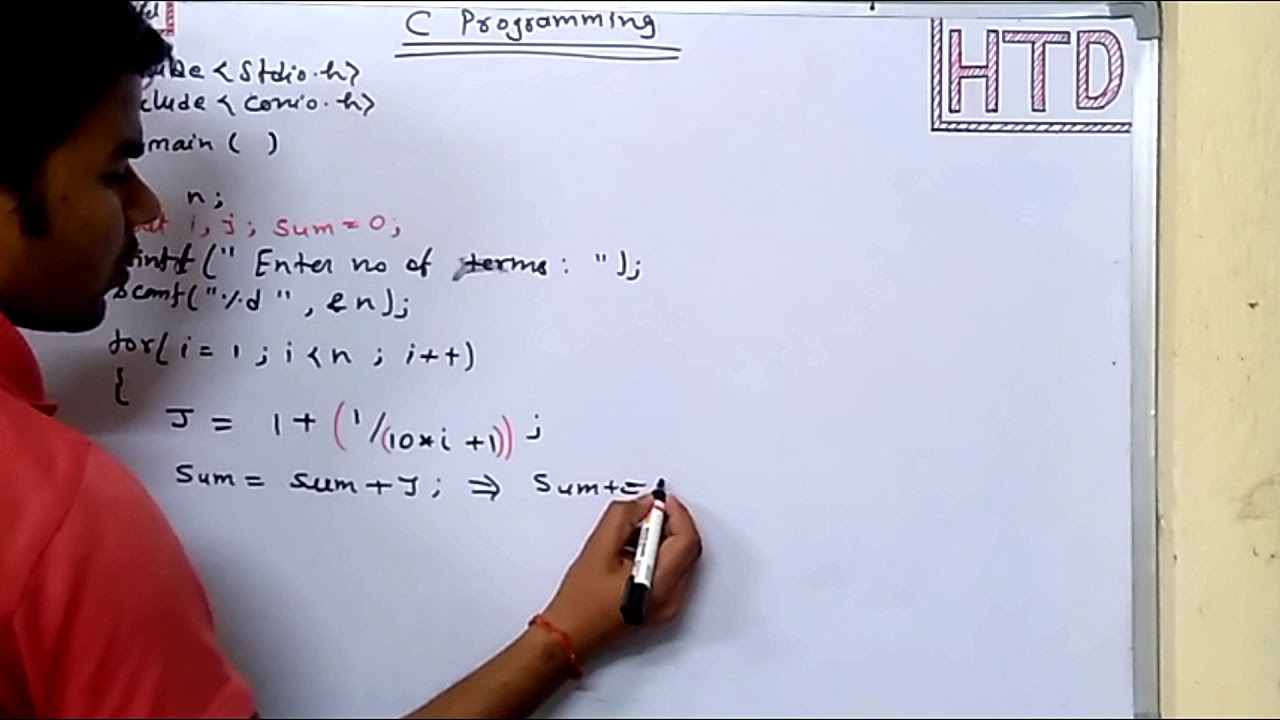 C Programming
HTD
<stdio.h>
clude <conio.h>
main ( )
n;
i, j; sum = 0;
intf (" Enter no of terms : ");
scanf("%d ", & n);
for( i = 1 ; i < n ; i++)
{
J = 1 + (1/(10*i +1)) ;
Sum = sum + J ; ⇒ Sum+=